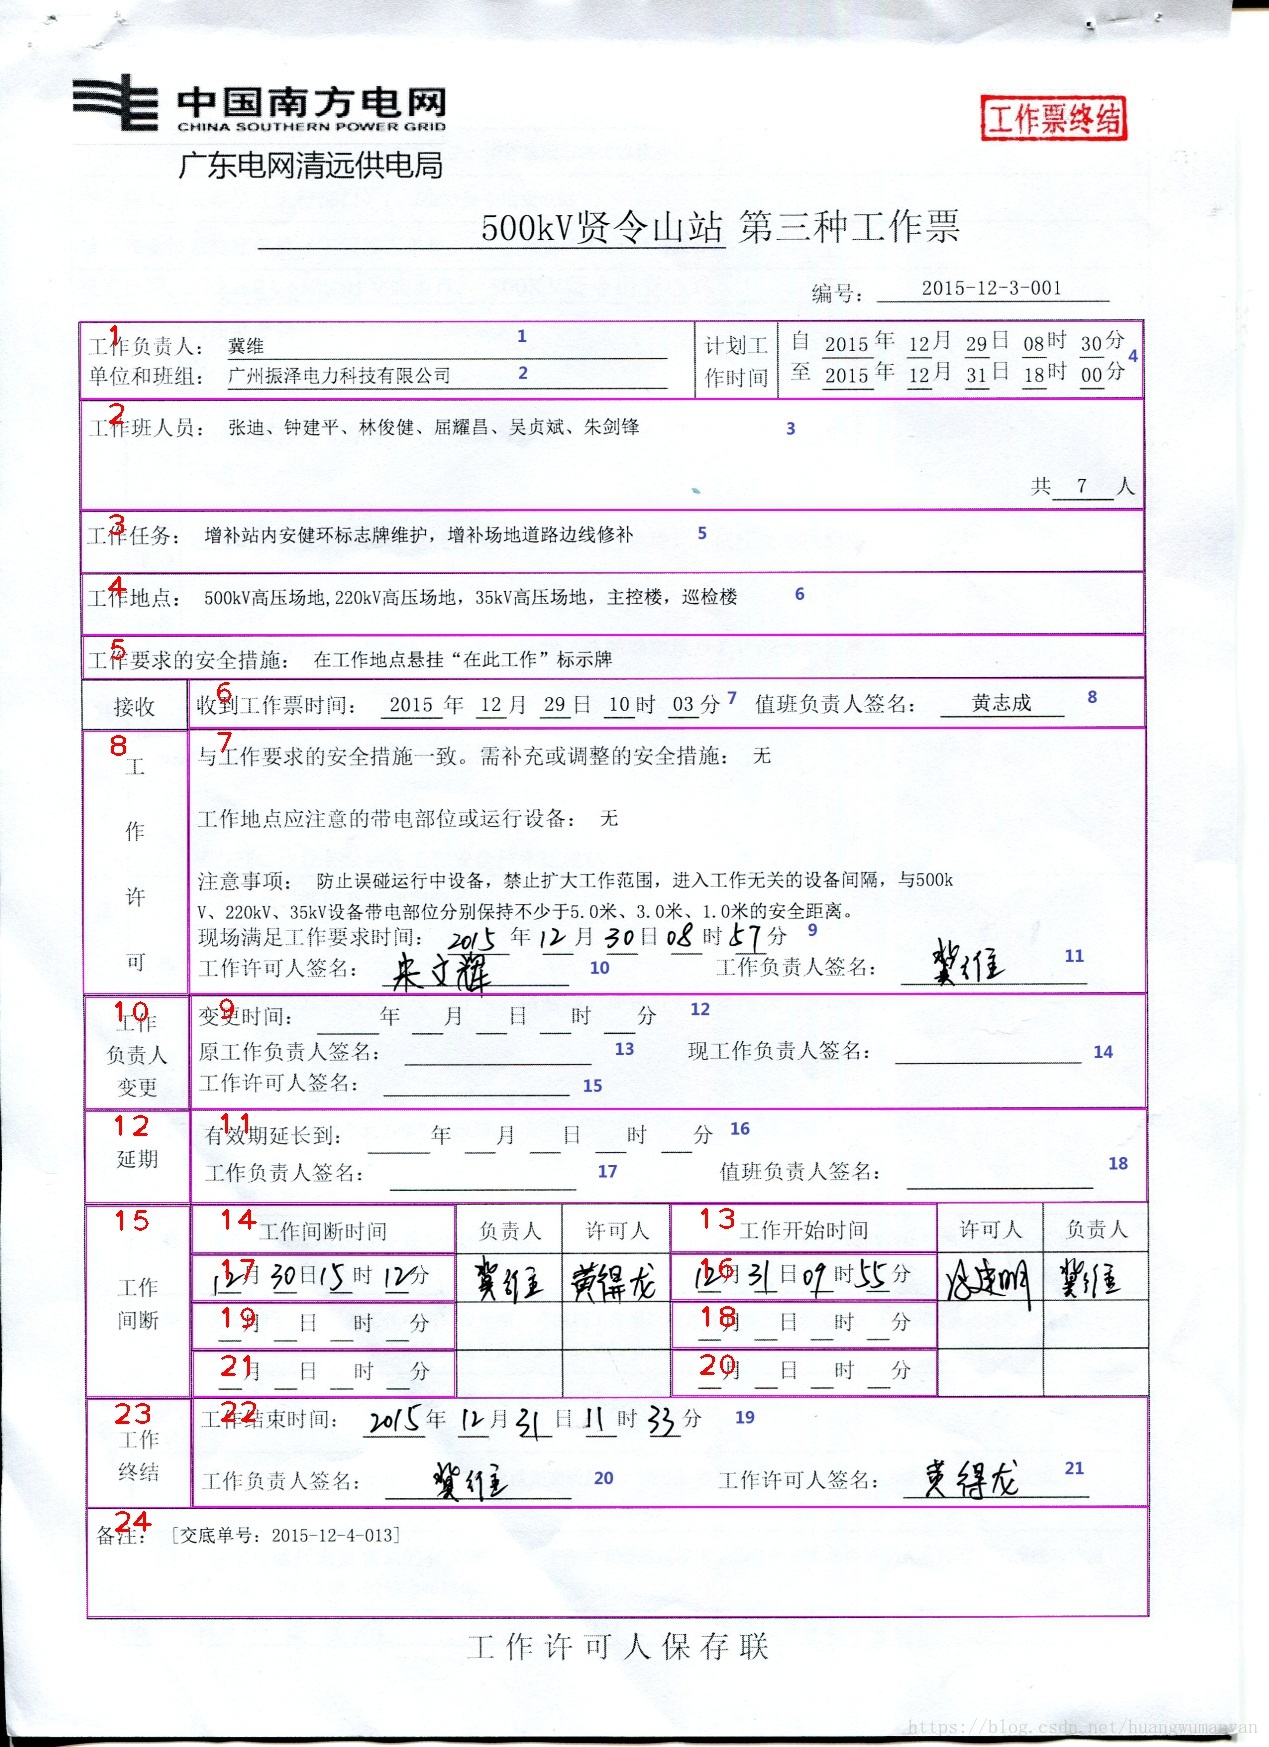 中国南方电网
CHINA SOUTHERN POWER GRID
广东电网清远供电局
工作票终结
500kV贤令山站 第三种工作票
编号： 2015-12-3-001
1
工作负责人： 冀维 1
单位和班组： 广州振泽电力科技有限公司 2
计划工作时间 自 2015 年 12 月 29 日 08 时 30 分
至 2015 年 12 月 31 日 18 时 00 分 4
2
工作班人员： 张迪、钟建平、林俊健、屈耀昌、吴贞斌、朱剑锋 3
共 7 人
3
工作任务： 增补站内安健环标志牌维护，增补场地道路边线修补 5
4
工作地点： 500kV高压场地,220kV高压场地，35kV高压场地，主控楼，巡检楼 6
5
工作要求的安全措施： 在工作地点悬挂“在此工作”标示牌
接收 6 收到工作票时间： 2015 年 12 月 29 日 10 时 03 分 7 值班负责人签名： 黄志成 8
8 工作许可
7
与工作要求的安全措施一致。需补充或调整的安全措施： 无
工作地点应注意的带电部位或运行设备： 无
注意事项： 防止误碰运行中设备，禁止扩大工作范围，进入工作无关的设备间隔，与500k
V、220kV、35kV设备带电部位分别保持不少于5.0米、3.0米、1.0米的安全距离。
现场满足工作要求时间： 2015 年 12 月 30 日 08 时 57 分 9
工作许可人签名： 宋文辉 10 工作负责人签名： 冀维 11
10 工作负责人变更
9
变更时间： 年 月 日 时 分 12
原工作负责人签名： 13 现工作负责人签名： 14
工作许可人签名： 15
12 延期
11
有效期延长到： 年 月 日 时 分 16
工作负责人签名： 17 值班负责人签名： 18
15 工作间断
14 工作间断时间 负责人 许可人 13 工作开始时间 许可人 负责人
17 12月 30日 15时 12分 冀维 黄得龙 16 12月 31日 09时 55分 冀维
19 月 日 时 分 18 月 日 时 分
21 月 日 时 分 20 月 日 时 分
23 工作终结
22
工作结束时间： 2015 年 12 月 31 日 11 时 33 分 19
工作负责人签名： 冀维 20 工作许可人签名： 黄得龙 21
24
备注： [交底单号：2015-12-4-013]
工作许可人保存联
https://blog.csdn.net/huangwumanyan